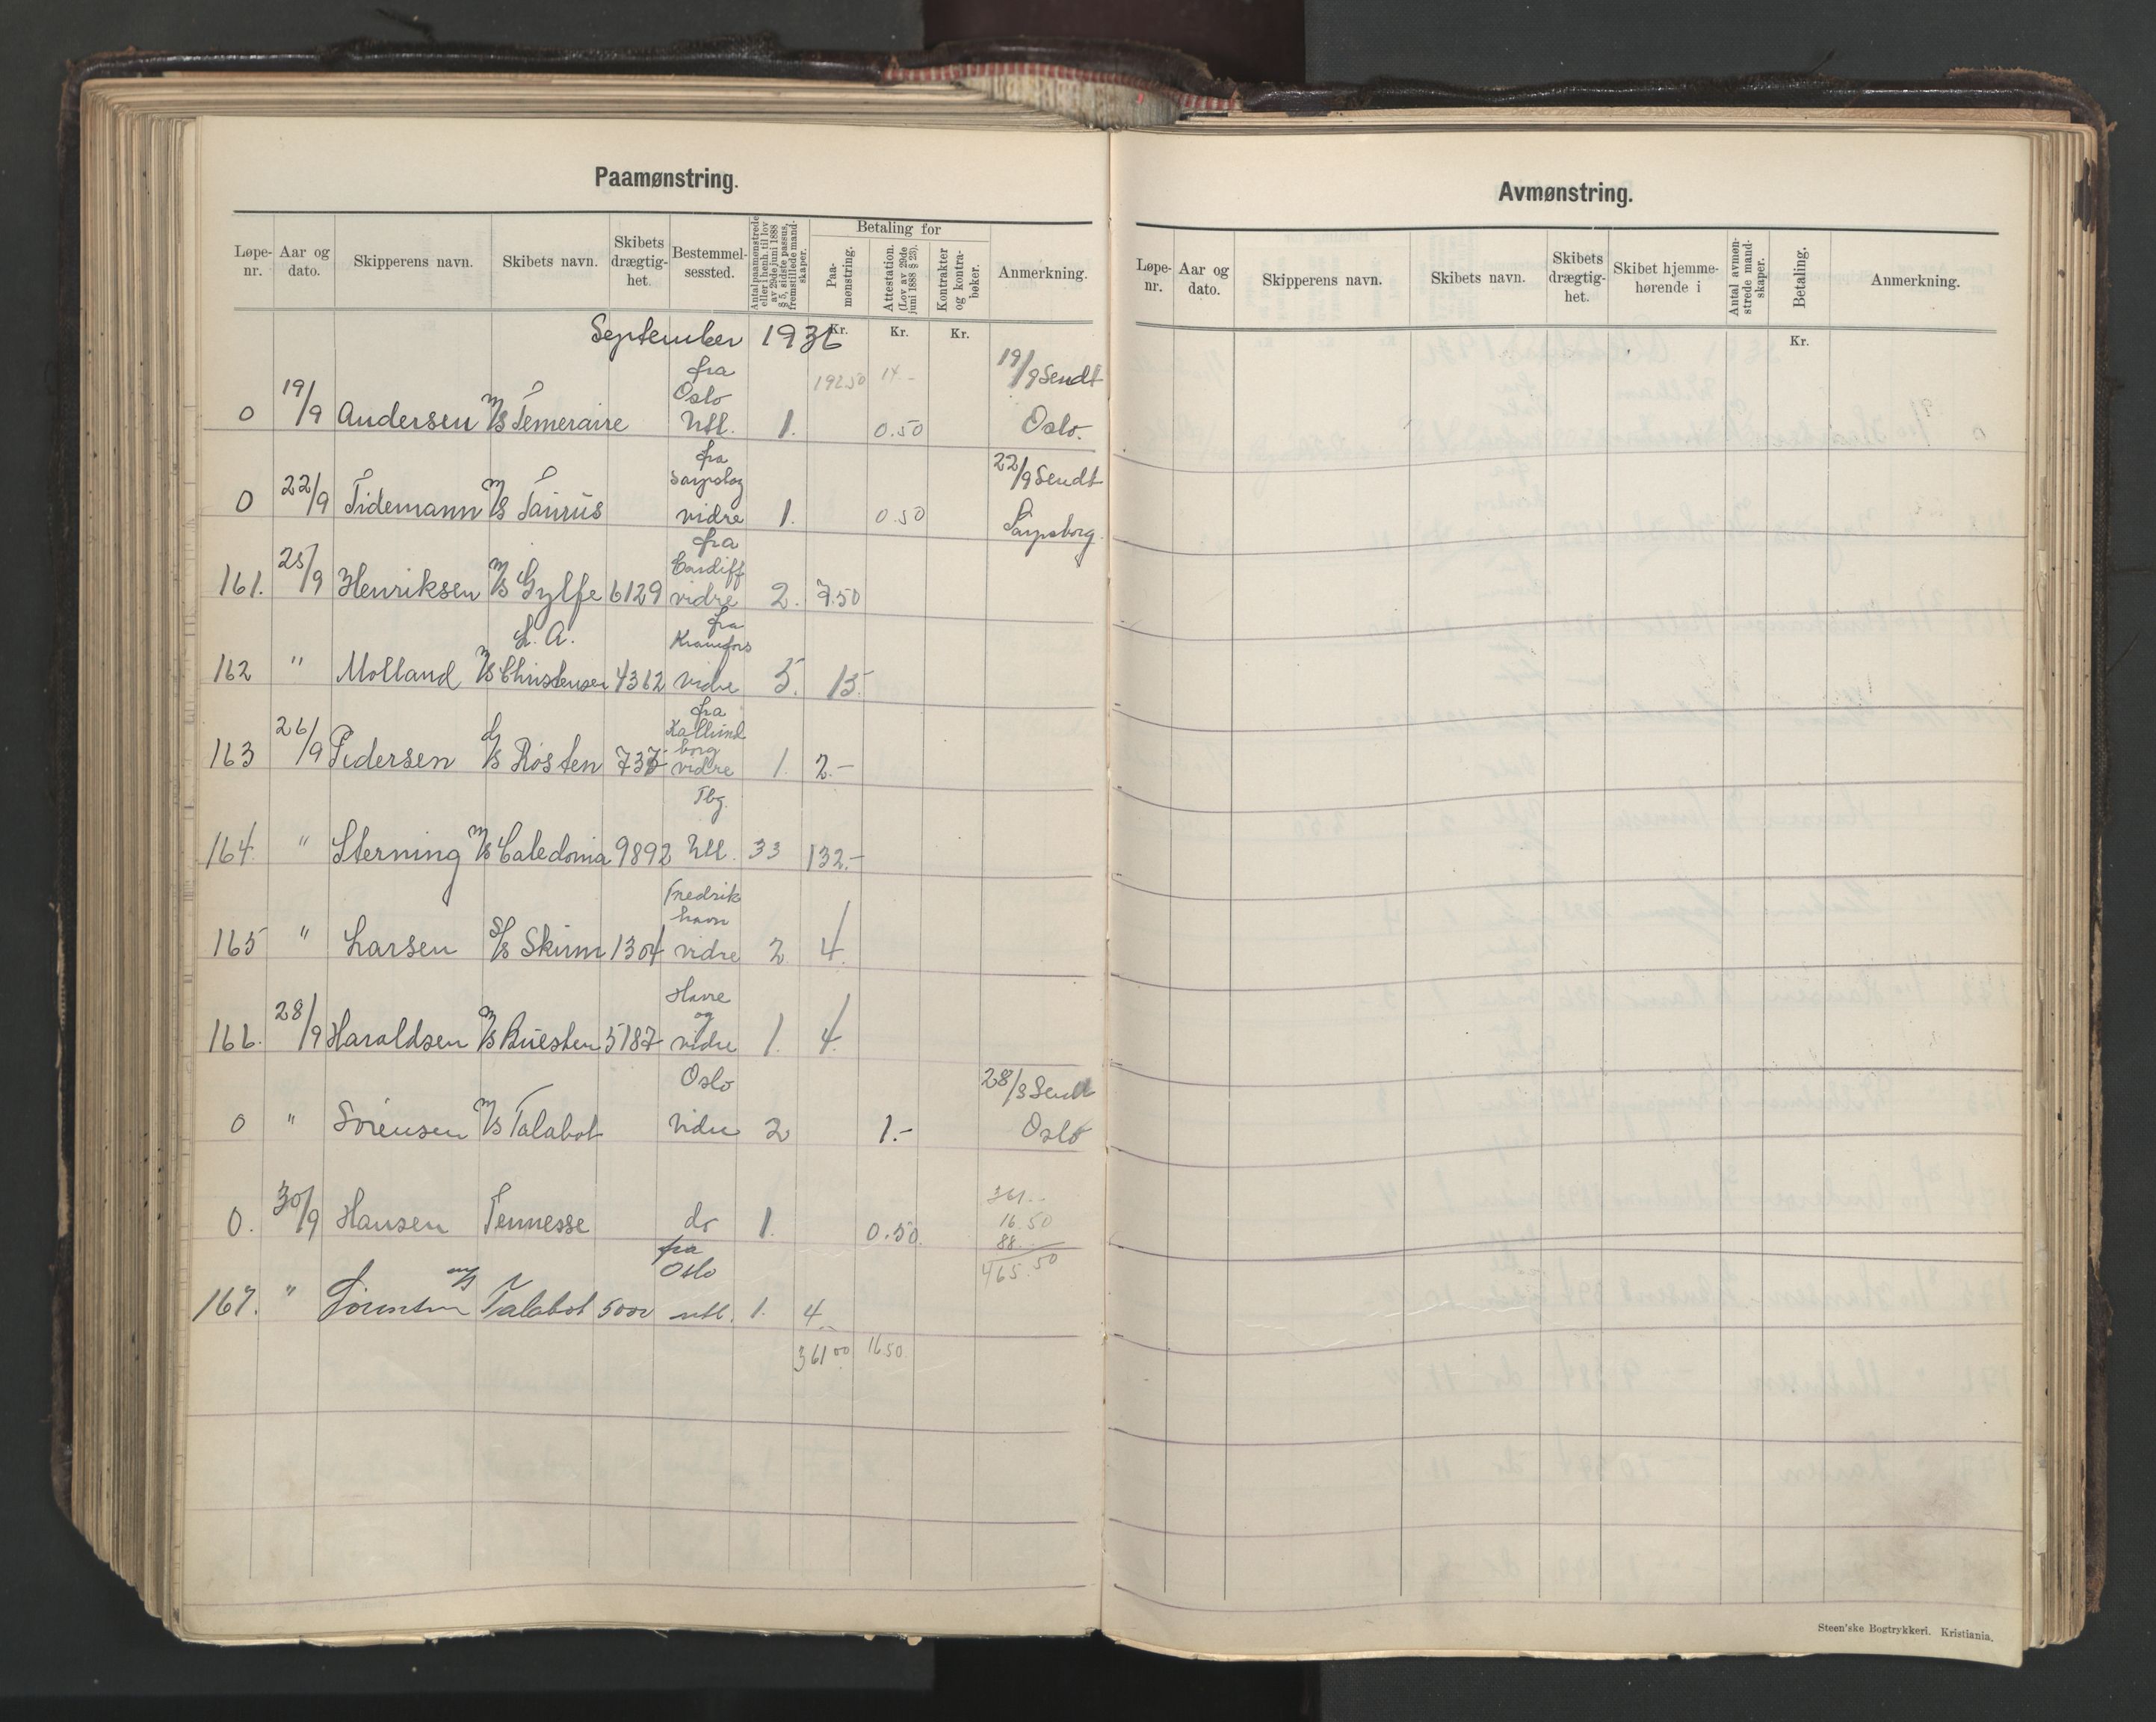 Paamønstring.
Løpe-nr. Aar og dato. Skipperens navn. Skibets navn. Skibets drægtig-het. Bestemmel-sessted. Antal paamønstrede eller i henh. til lov av 29de juni 1888 § 5, sidste passus, fremstillede mand-skaper. Betaling for Paa-mønstring. Attestation. (Lov av 29de juni 1888 § 23). Kontrakter og kontra-bøker. Anmerkning.
Kr. Kr. Kr.
September 1936
192.50 14.-
0 19/9 Andersen m/s Temeraire fra Oslo Utl. 1. 0.50 19/9 Sendt Oslo.
0 22/9 Tidemann m/s Taurus fra Sarpsbog vidre 1. 0.50 22/9 Sendt Sarpsborg.
161. 25/9 Henriksen m/s Gylfe 6129 fra Cardiff vidre 2. 7.50
162 " Molland m/s L. A. Christensen 4362 fra Kramfors vidre 5. 15.
163 26/9 Pedersen d/s Rosten 737 fra Kallund borg vidre 1. 2.-
164. " Sterning m/s Caledonia 9892 Tbg. Utl. 33 132.-
165 " Larsen S/s Skum 1304 Fredrik havn vidre 2. 4.
166. 28/9 Haraldsen m/s Buesten 5187 Havre og vidre 1. 4.
0 " Sörensen m/s Talabot Oslo vidre 2 1.- 28/9 Sendt Oslo
0. 30/9 Hansen Tennesse do 1. 0.50.
361.-
16.50
88.
465.50
167. " Sörensen m/s Talabot 5000 fra Oslo utl. 1. 4.-
361.00 16.50
Avmønstring.
Løpe-nr. Aar og dato. Skipperens navn. Skibets navn. Skibets drægtig-het. Skibet hjemme-hørende i Antal avmøn-strede mand-skaper. Betaling. Anmerkning.
Kr.
Steen'ske Bogtrykkeri. Kristiania.